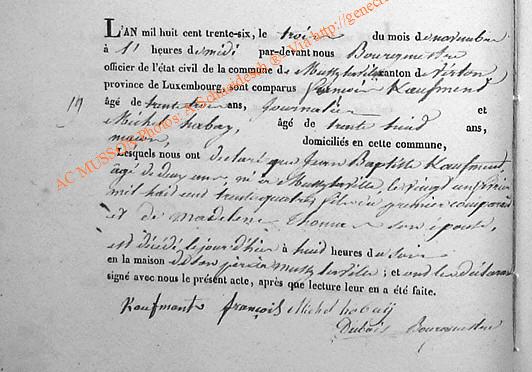 L'AN mil huit cent trente-six, le trois du mois de novembre
à 11 heures de midi par-devant nous Bourgmestre
officier de l'état civil de la commune de canton de Virton
province de Luxembourg, sont comparus françois Kaufment
19 âgé de trente trois ans, Journalier et
Michel habay, âgé de trente huit ans,
maçon, domiciliés en cette commune,
Lesquels nous ont declaré que Jean Baptiste Kaufment
âgé de deux ans, né à le vingt un
mil huit cent trente quatre, fils du premier comparant
et de Madeleine Thomas son épouse,
est décédé le jour d'hier à huit heures du soir
en la maison de son père à ; et ont les déclarans
signé avec nous le présent acte, après que lecture leur en a été faite.
Kaufmant françois Michel habaÿ
Dubois Bourgmestre
AC MUSSON Photos: A.Schneidesch ® Via http://genecr